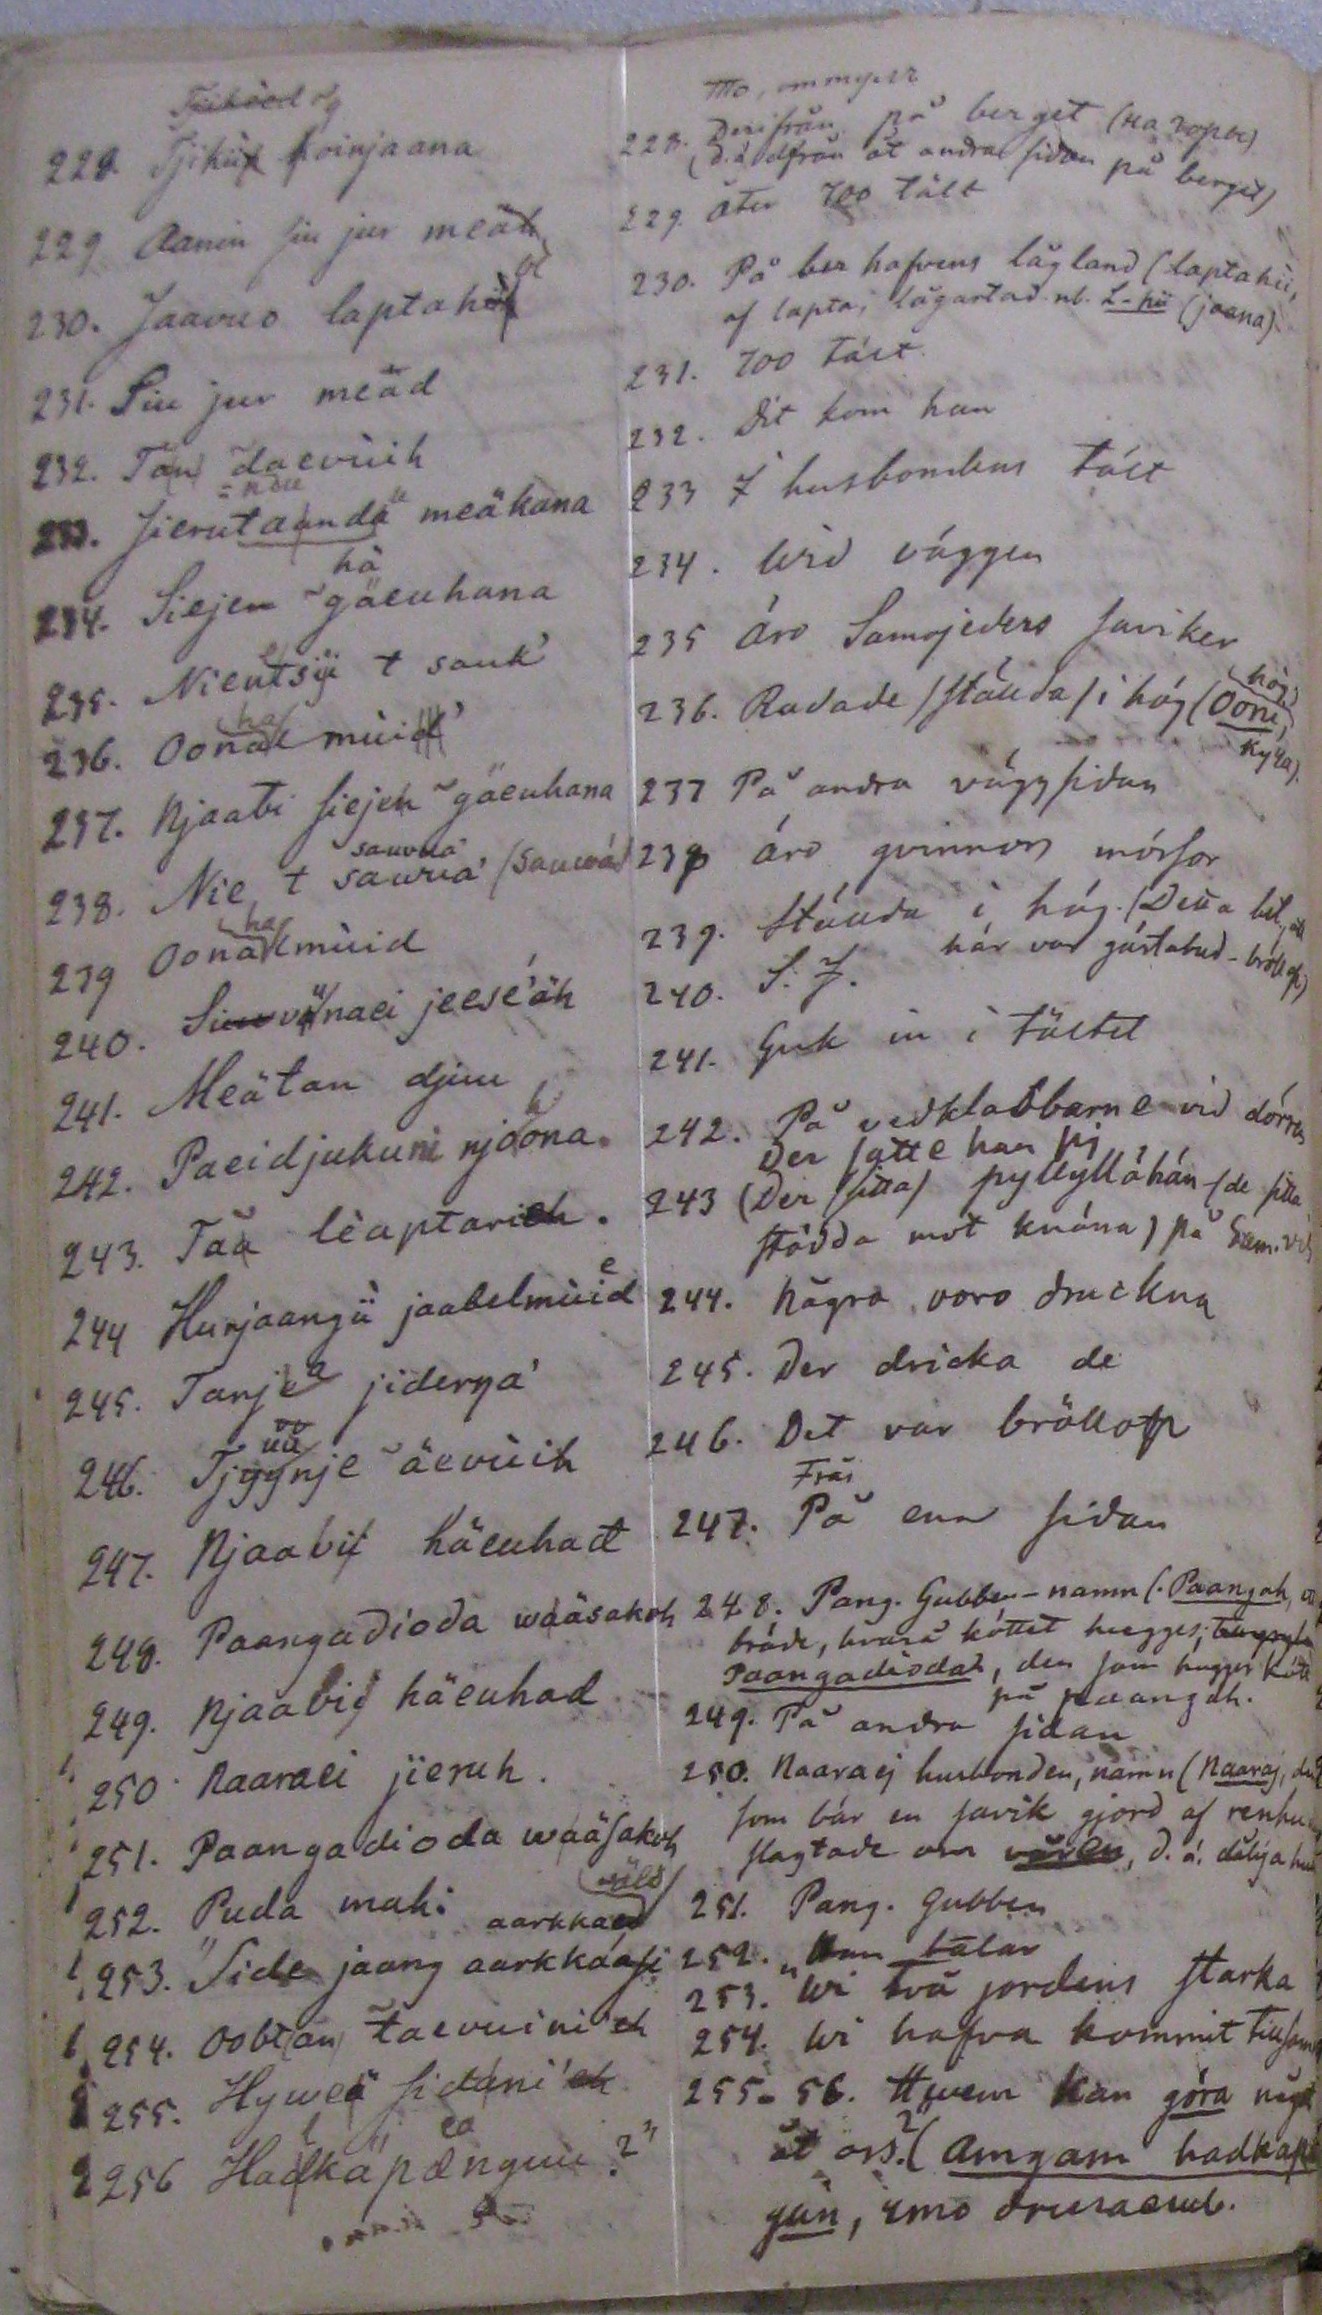 228. Tjiküt hoinjaana
229 Aanin siu jur meäh
230. Jaavuo laptahüf
231. Siu jur meäd
232. Tan daevùih
233. sierutaanda meäkana
hä
234. Siejen gäeuhana
235. Nientsÿe t sauk'
ha
236. Oonal mùid'
237. Njaabi siejeh gäeuhana
sauvuá
238. Nie t sauvuá (sauwá)
ha
239 Oonalmùid
240. Siuvünaei jeesé'äh
241. Meätan djuu
242. Paeidjukuni njoona
243. Taa lèaptarieh.
244 Hurjaangü jaabelmùid
245. Tanje jiderŋa'
üü
246. Tjyynje äevùih
247. Njaabif häeuhad
248. Paangadioda wääsakoh
249. Njaabif häeuhad
250 Naaraei jieruh.
251. Paangadioda wääsakoh
252. Puda mah:
aarkkaed
253. "Side jaang aarkkaási
254. Oobtan taevuini'eh
255. Hyweä sidáni'eh
256 Hadkäpænguu?"
228. Derifrån på berget (на горѣ)
(d.ä. difrån åt andra sidan på berget)
229. åter 700 tält
230. På ber hafvens lågland (laptahii,
af lapta, lågartad. nb. L-hii (jaana)
231. 700 tält
232. Dit kom han
233 I husbondens tält
234. wid väggen
235 äro Samojeders saviker
236. Radade (stända) i hög (Oone, hög
куча).
237 På andra väggsidan
238 äro qvinnors mössor
239. Stända i hög. (Detta bet. att
här var gästabud - bröllop)
240. S. J.
241. Guk in i tältet
242. På vedklabbarne vid dörren
Der satte han sig
243 (Der sitta)
stödda mot knäna) på Sam. vis
244. några voro druckna
245. Der dricka de
246. Det var bröllop
Från
247. På ena sidan
248. Pang. Gubben - namn (Paangah,
bräde, hvarå köttet hugges;
Paangadioda, den som hugger kött
på paangah.
249. På andra sidan
250. Naaraej husbonden, namn (Naaraj, den
som bär en savik gjord af renhud
slagtade om våren, d. ä. dåliga hud
251. Pang. Gubben
252. Han talar
253. "Wi två jordens starka
254. Wi hafva kommit tillsam
255-56. Hwem kan göra något
åt oss? (Amgam hadkap
gun,